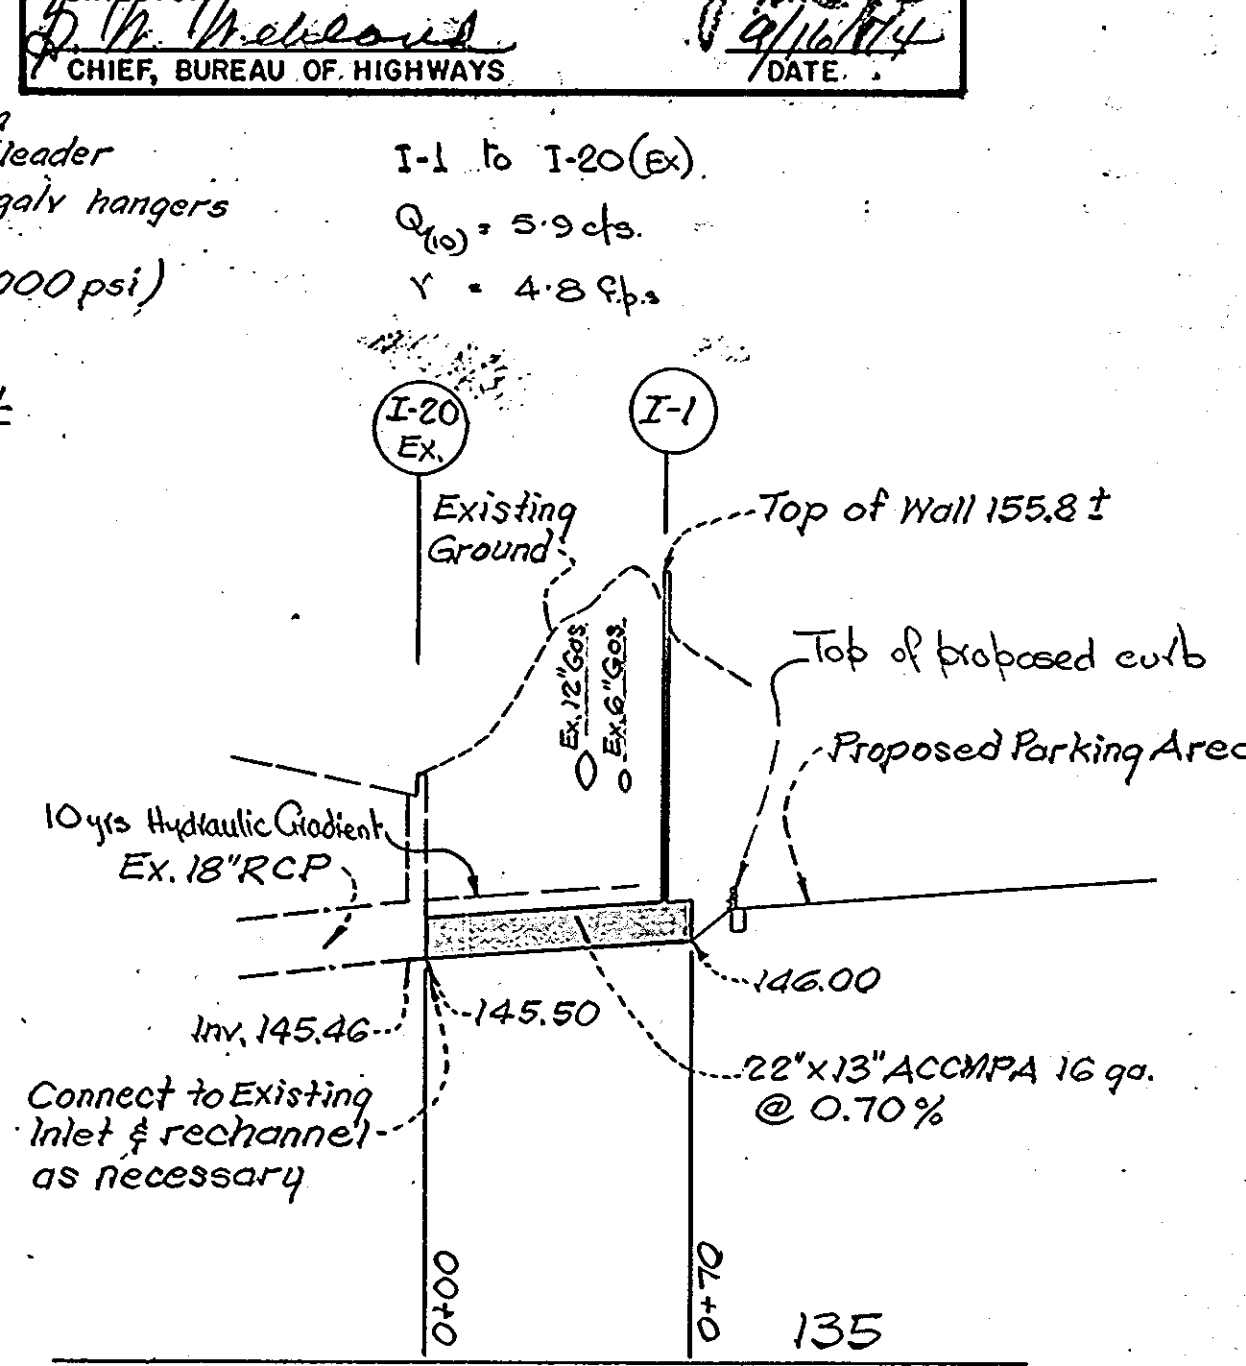 9/16/74
CHIEF, BUREAU OF HIGHWAYS
DATE
leader
galv hangers
000 psi)
I-1 to I-20 (Ex).
Q(10) = 5.9 cfs.
V = 4.8 f.p.s
I-20
Ex.
I-1
Existing
Ground
Top of Wall 155.8 ±
Ex. 12" Gas
Ex. 6" Gas
Top of proposed curb
Proposed Parking Area
10 yrs Hydraulic Gradient
Ex. 18" RCP
146.00
Inv. 145.46
145.50
22" x 13" ACCMPA 16 ga.
@ 0.70%
Connect to Existing
Inlet & rechannel
as necessary
0+00
0+70
135